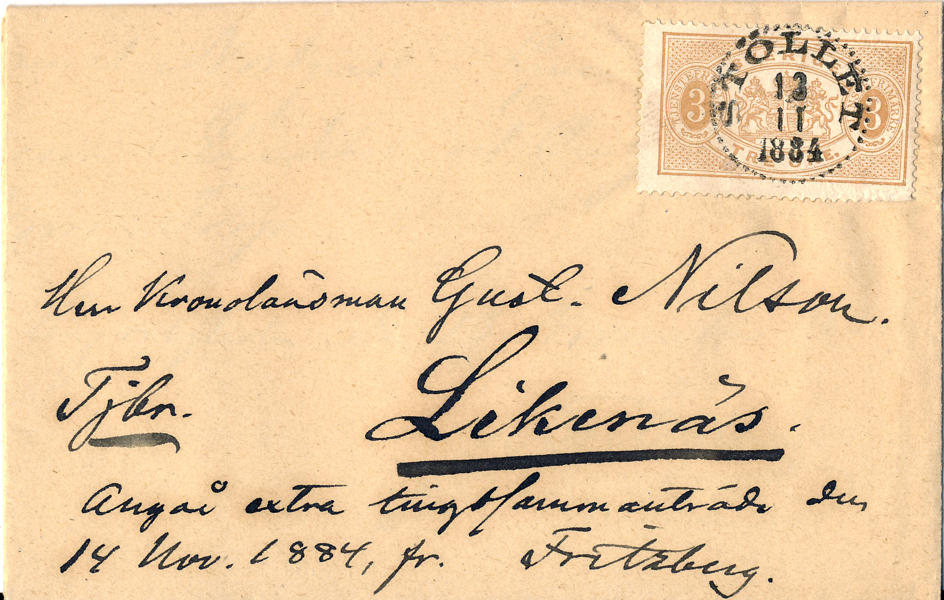 STÖLLET
13
11
1884
3 TJENSTEFRIMÄRKE 3
TRE ÖRE.
Herr Kronolänsman Gust. Nilson.
Tjbr.
Likenäs.
Angår extra tingssammanträde den
14 Nov. 1884, fr. Fritzberg.